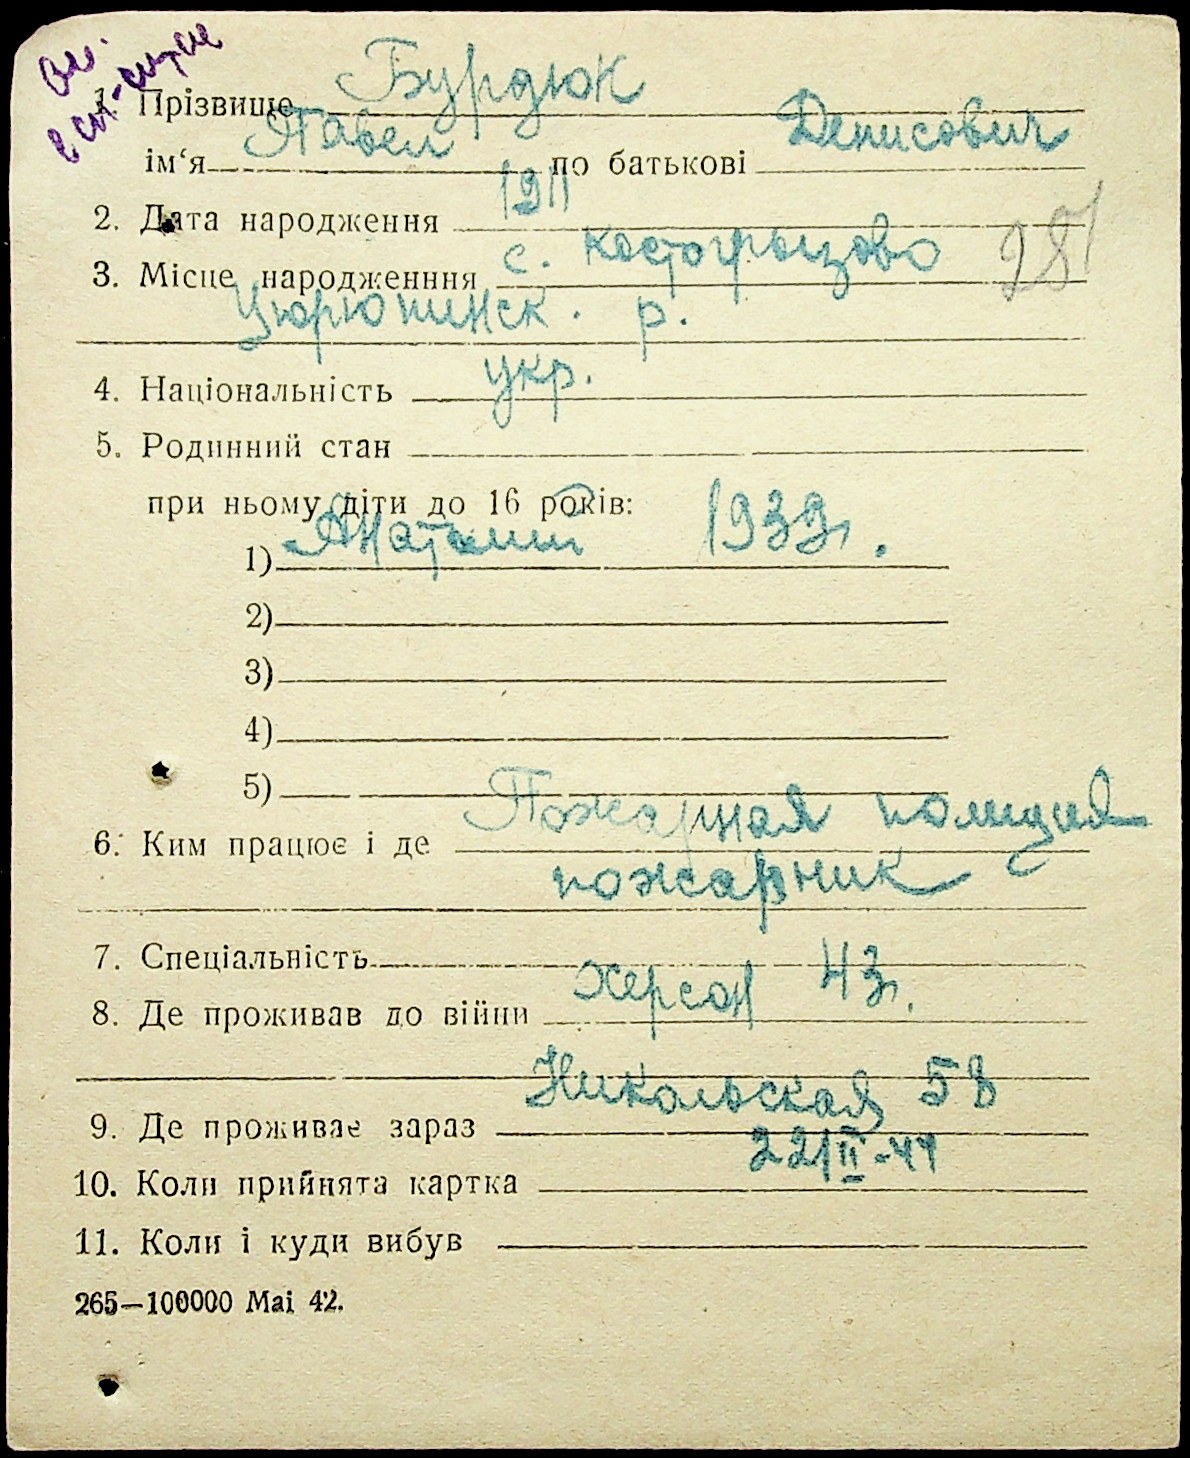 1. Прізвище Бурдюк
ім‘я Павел по батькові Денисович
2. Дата народження 1911
3. Місце народженння с. Костогрызово
281
Цюрюпинск. р.
4. Національність укр.
5. Родинний стан
при ньому діти до 16 років:
1) Анатолий 1939г.
2)
3)
4)
5)
6. Ким працює і де Пожарная полиция
пожарник
7. Спеціальність
8. Де проживав до війни Херсон 43г.
9. Де проживає зараз Никольская 58
10. Коли прийнята картка 22/II-44
11. Коли і куди вибув
265—100000 Mai 42.